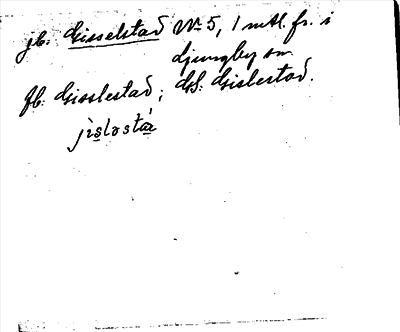 jb: Gisselstad No 5, 1 mtl. fr. i
Ljungby sn.
fb: Gisslestad; GS: Gislestad.
jislostá